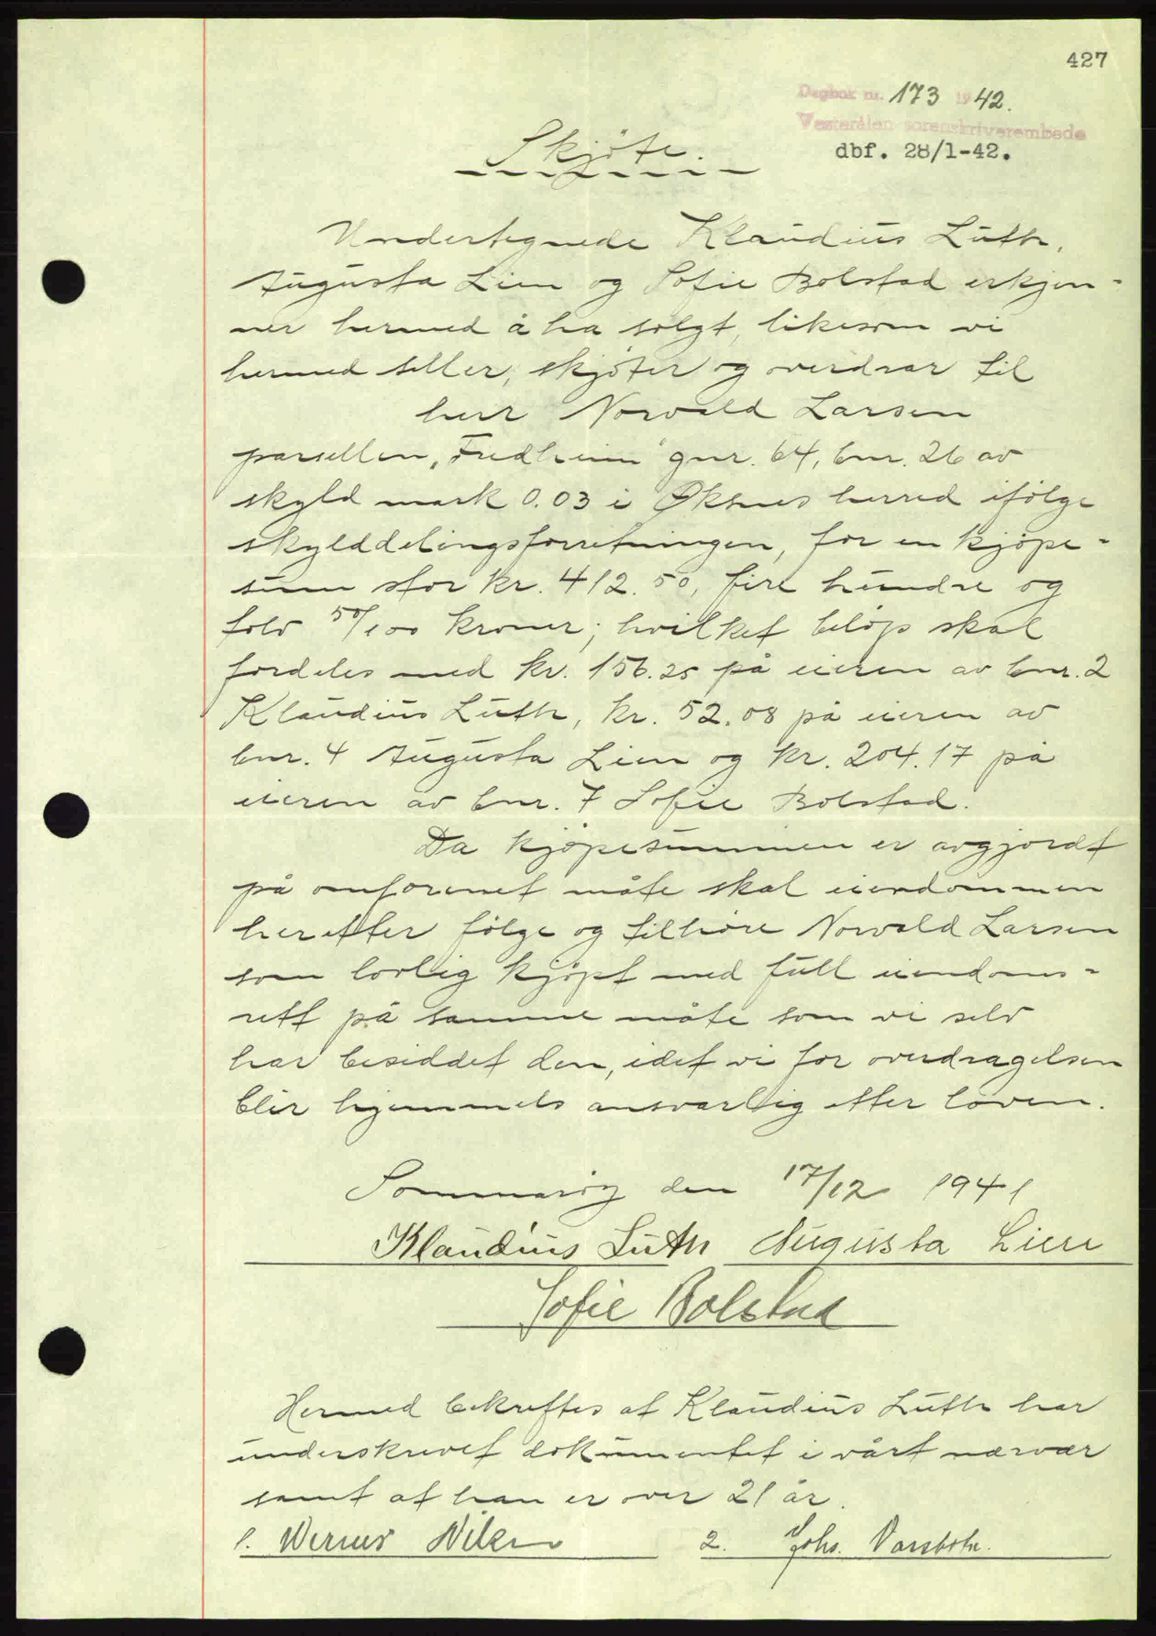 427
Dagbok nr. 173 1942.
Vesterålen sorenskriverembede
dbf. 28/1-42.
Skjøte.
Undertegnede Klaudius Luth,
Augusta Lien og Sofie Bolstad erkjen-
ner hermed å ha solgt, likesom vi
hermed seller, skjøter og overdrar til
herr Norvald Larsen
parsellen „Fredheim" gnr. 64, bnr. 26 av
skyld mark 0.03 i Øksnes herred ifølge
skylddelingsforretningen, for en kjøpe-
sum stor kr. 412.50, fire hundre og
tolv 50/100 kroner; hvilket beløp skal
fordeles med kr. 156.25 på eieren av bnr. 2
Klaudius Luth, kr. 52.08 på eieren av
bnr. 4 Augusta Lien og kr. 204.17 på
eieren av bnr. 7 Sofie Bolstad.
Da kjøpesummen er avgjordt
på omforenet måte skal eiendommen
herefter følge og tilhøre Norvald Larsen
som lovlig kjøpt med full eiendoms-
rett på samme måte som vi selv
har besiddet den, idet vi for overdragelsen
blir hjemmels ansvarlig etter loven.
Sommarøy den 17/12 1941
Klaudius Luth Augusta Lien
Sofie Bolstad
Hermed bekreftes at Klaudius Luth har
underskrevet dokumentet i vårt nærvær
samt at han er over 21 år.
1. Werner Nilsen 2. Johs.